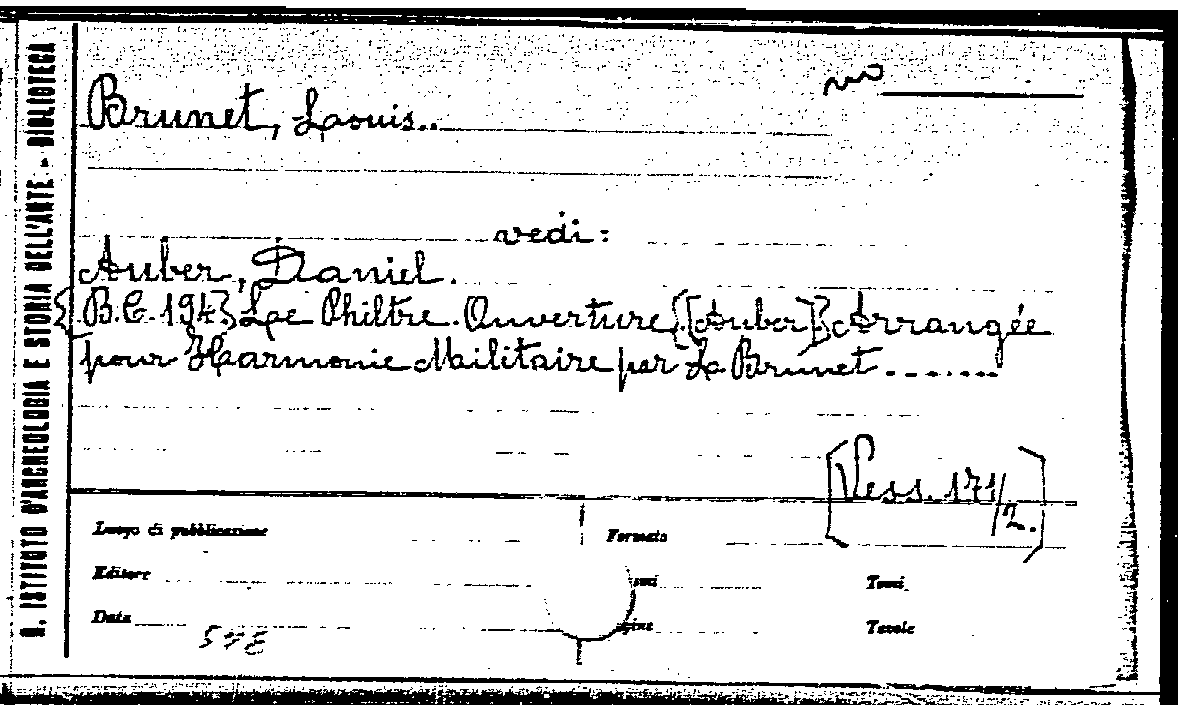 R. ISTITUTO D'ARCHEOLOGIA E STORIA DELL'ARTE - BIBLIOTECA
Brunet, Louis..
vedi:
Auber, Daniel.
{B.C. 194} Le Philtre. Ouverture {[Auber]} Arrangée
pour Harmonie Militaire par L. Brunet .......
[Vess. 171/2.]
Luogo di pubblicazione
Formato
Editore
Tomi
Data
Tavole